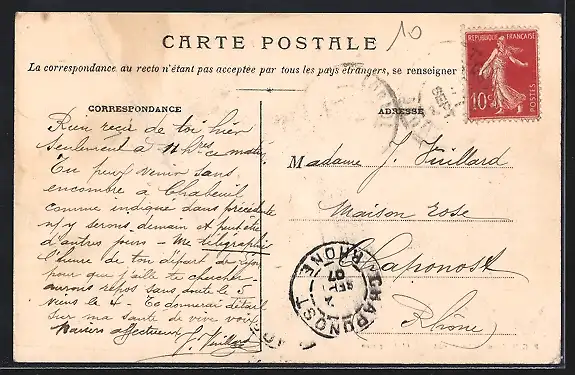 10
CARTE POSTALE
La correspondance au recto n'étant pas acceptée par tous les pays étrangers, se renseigner
REPUBLIQUE FRANÇAISE
10c
POSTES
CORRESPONDANCE
ADRESSE
Rien reçu de toi hier
seulement à 11 hres ce matin
Tu peux venir sans
encombre à Chabeuil
comme indiqué dans précédente
n/y serons demain et peut être
d'autres jours - Me télégraphier
l'heure de ton départ de
pour que j'aille te chercher
aurons repos sans doute le 5
viens le 4 - Te donnerai détail
sur ma santé de vive voix
Baisers affectueux J. Vuillard
Madame J. Vuillard
Maison Rose
Chaponost
Rhône
CHAPONOST
RHONE
07